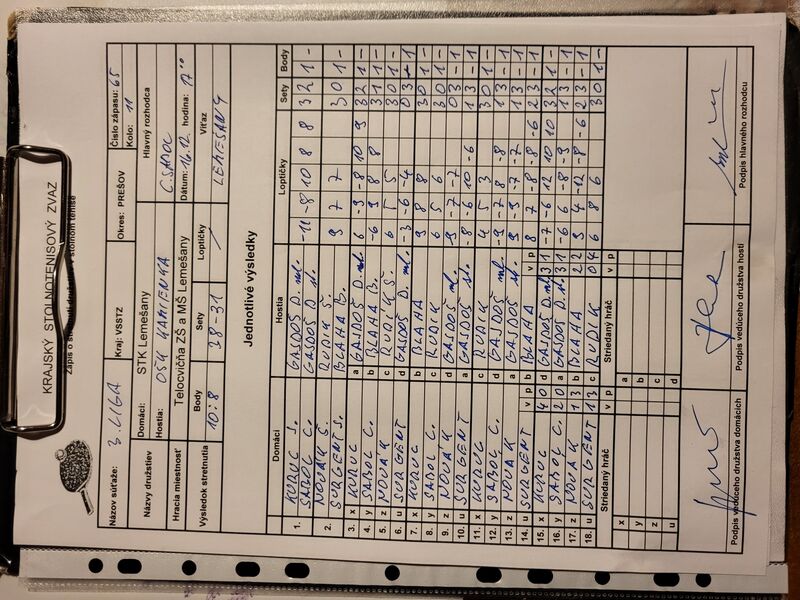 KRAJSKÝ STOLNOTENISOVÝ ZVAZ
Zápis o stretnutí družstiev v stolnom tenise
Názov súťaže: 3. LIGA Kraj: VSSTZ Okres: PREŠOV Číslo zápasu: 65
Kolo: 11
Názvy družstiev Domáci: STK Lemešany Hlavný rozhodca
Hostia: OŠK KAMIENKA C. SABOL
Hracia miestnosť Telocvičňa ZŠ a MŠ Lemešany Dátum: 16.12. hodina: 17 00
Výsledok stretnutia Body Sety Loptičky Víťaz
10:8 38-31 / LEMEŠANY
Jednotlivé výsledky
Domáci Hostia Loptičky Sety Body
1. KURUC S. GAJDOŠ D. ml. -11 -8 10 8 8 3 2 1 -
SABOL C. GAJDOŠ D. st.
2. NOVÁK Š. RUDIK Š. 9 7 7 3 0 1 -
SURGENT S. BLAHA B.
3. x KURUC a GAJDOŠ D. ml. 6 -3 -8 10 9 3 2 1 -
4. y SABOL C. b BLAHA B. -6 9 8 8 3 1 1 -
5. z NOVÁK c RUDIK Š. 6 5 5 3 0 1 -
6. u SURGENT d GAJDOŠ D. -3 -6 -4 0 3 - 1
7. x KURUC b BLAHA 9 8 8 3 0 1 -
8. y SABOL C. c RUDIK 6 5 6 3 0 1 -
9. z NOVÁK d GAJDOŠ -9 -7 -7 0 3 - 1
10. u SURGENT a GAJDOŠ -8 6 -10 -6 1 3 - 1
11. x KURUC c RUDIK 4 5 3 3 0 1 -
12. y SABOL C. d GAJDOŠ -9 -7 8 -8 1 3 - 1
13. z NOVÁK a GAJDOŠ 9 -9 -7 -7 1 3 - 1
14. u SURGENT v p b BLAHA v p 8 7 -8 -8 -6 2 3 - 1
15. x KURUC 4 0 d GAJDOŠ D. ml. 3 1 -7 -6 12 10 10 3 2 1 -
16. y SABOL C. 2 0 a GAJDOŠ D. 3 1 -6 6 -8 -9 1 3 - 1
17. z NOVÁK 1 3 b BLAHA 2 2 9 4 -12 -8 -6 2 3 - 1
18. u SURGENT 1 3 c RUDIK 0 4 6 8 6 3 0 1 -
Striedaný hráč v p Striedaný hráč v p
x a
y b
z c
u d
Podpis vedúceho družstva domácich Podpis vedúceho družstva hostí Podpis hlavného rozhodcu